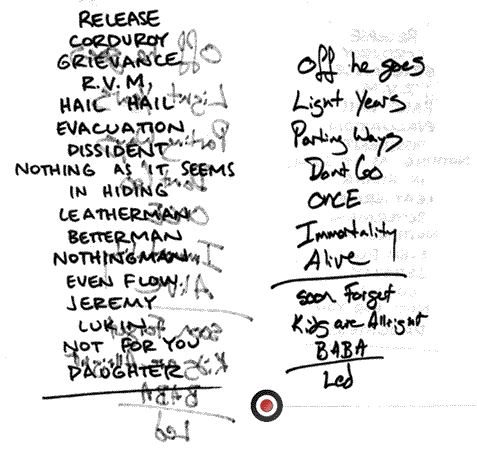 RELEASE
CORDUROY
GRIEVANCE
R.V.M.
HAIL HAIL
EVACUATION
DISSIDENT
NOTHING AS IT SEEMS
IN HIDING
LEATHERMAN
BETTERMAN
NOTHINGMAN
EVEN FLOW
JEREMY
LUKIN
NOT FOR YOU
DAUGHTER
Off he goes
Light Years
Parting Ways
Dont Go
ONCE
Immortality
Alive
soon Forget
Kids are Allright
BABA
Led